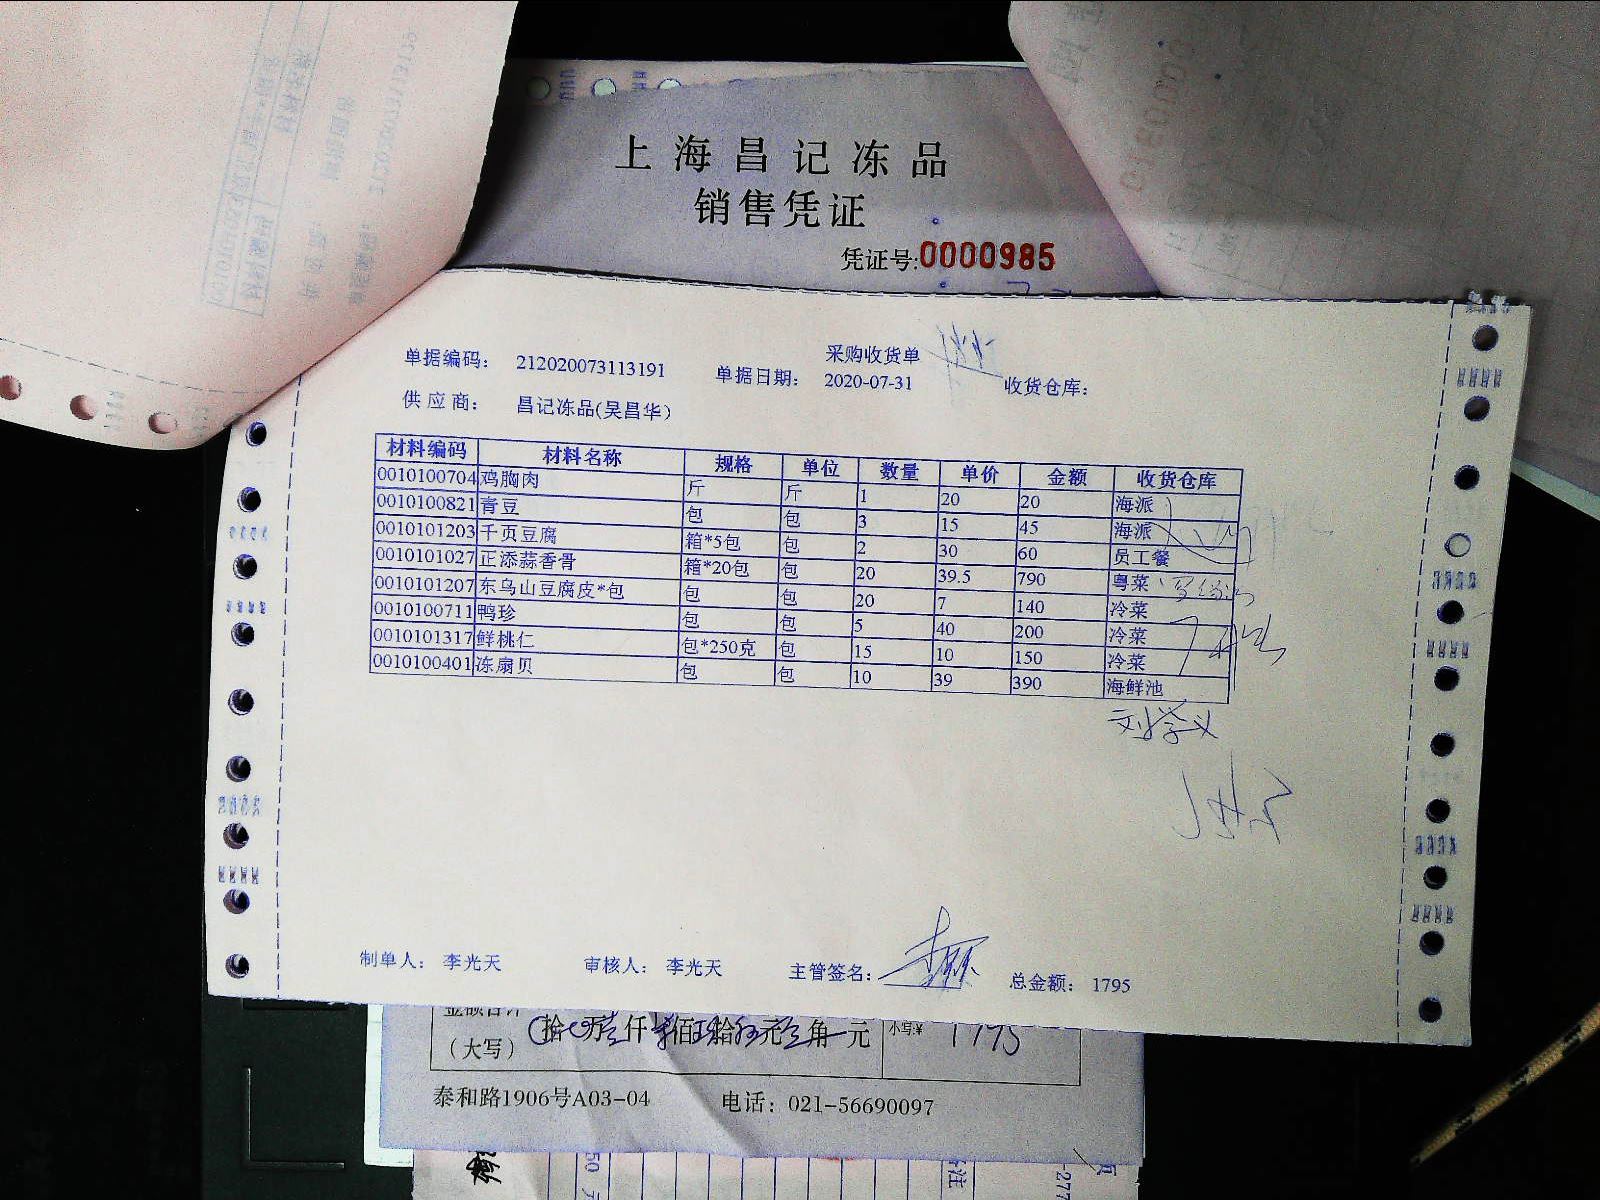 上海昌记冻品
销售凭证
凭证号:0000985
采购收货单
单据编码： 212020073113191 单据日期： 2020-07-31 收货仓库：
供应商： 昌记冻品(吴昌华)
材料编码 材料名称 规格 单位 数量 单价 金额 收货仓库
0010100704 鸡胸肉 斤 斤 1 20 20 海派
0010100821 青豆 包 包 3 15 45 海派
0010101203 千页豆腐 箱*5包 包 2 30 60 员工餐
0010101027 正添蒜香骨 箱*20包 包 20 39.5 790 粤菜
0010101207 东乌山豆腐皮*包 包 包 20 7 140 冷菜
0010100711 鸭珍 包 包 5 40 200 冷菜
0010101317 鲜桃仁 包*250克 包 15 10 150 冷菜
0010100401 冻扇贝 包 包 10 39 390 海鲜池
刘学义
制单人： 李光天 审核人： 李光天 主管签名： 总金额： 1795
金额合计
（大写） 拾 万 仟 佰 拾 元 角 元 小写¥ 1795
泰和路1906号A03-04 电话：021-56690097